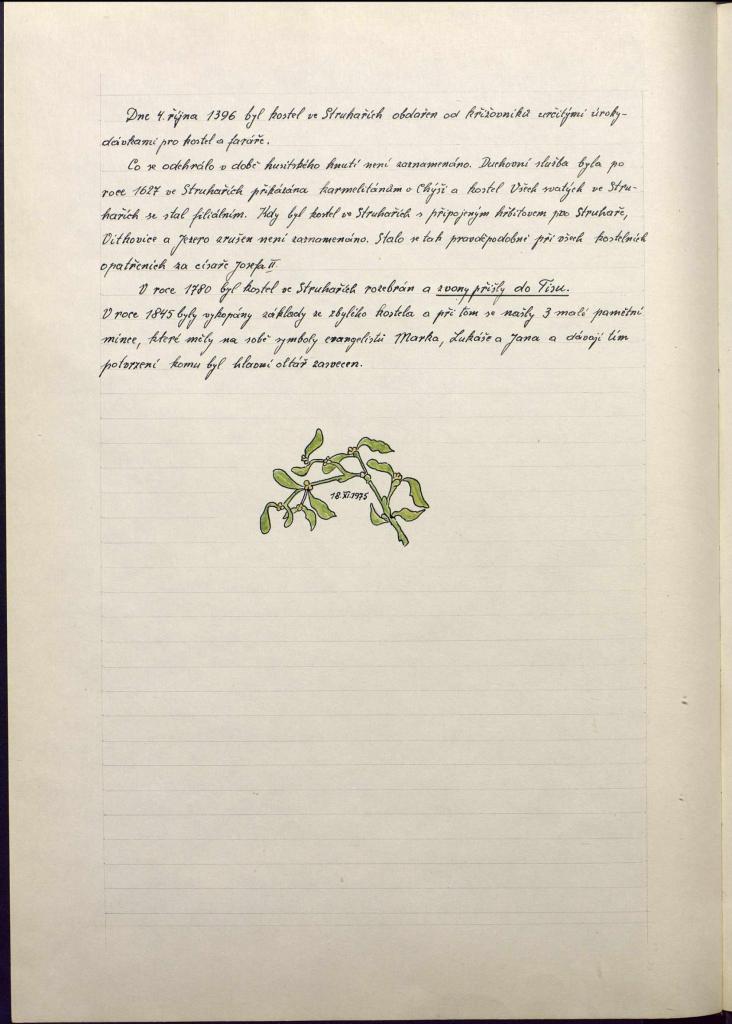 Dne 4. října 1396 byl kostel ve Struhařích obdařen od křižovníků určitými úroky-
dávkami pro kostel a faráře.
Co se odehrálo v době husitského hnutí není zaznamenáno. Duchovní služba byla po
roce 1627 ve Struhařích přikázána karmelitánům v Chýši a kostel Všech svatých ve Stru-
hařích se stal filiálním. Kdy byl kostel ve Struhařích s připojeným hřbitovem pro Struhaře,
Vítkovice a Jezero zrušen není zaznamenáno. Stalo se tak pravděpodobně při všech kostelních
opatřeních za císaře Josefa II.
V roce 1780 byl kostel ve Struhařích rozebrán a zvony přišly do Tisu.
V roce 1845 byly vykopány základy ze zbylého kostela a při tom se našly 3 malé pamětní
mince, které měly na sobě symboly evangelistů Marka, Lukáše a Jana a dávají tím
potvrzení komu byl hlavní oltář zasvecen.
18.XI.1975